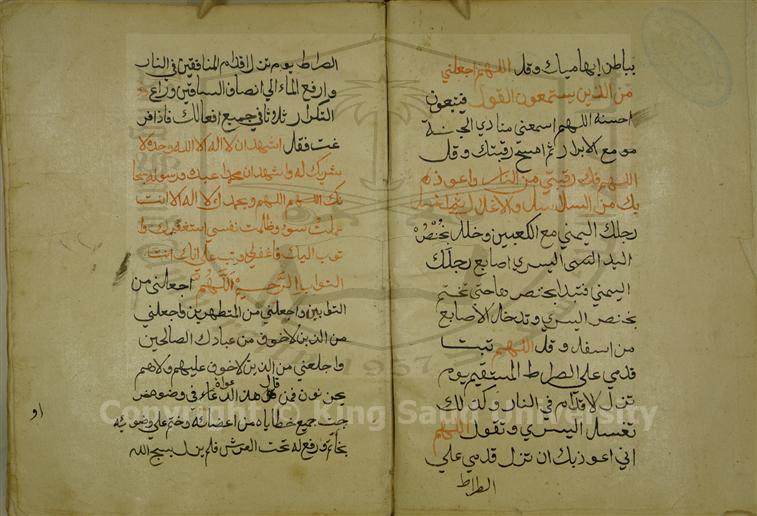 بباطن إبهامياك وقل اللهم اجعلني
من الذين يستمعون القول فيتبعون
احسنه اللهم اسمعني منادي الجنة
مع الابرار ثم امسح رقبتك وقل
اللهم فك رقبتي من النار واعوذ
بك من السلاسل والاغلال
رجلك اليمني مع الكعبين وخلل بخنصر
اليد اليسرى اصابع رجلك
اليمني فتبدا بخنصرها حتي تختم
بخنصر اليسري وتدخل الاصابع
من اسفل وقل اللهم ثبت
قدمي علي الصراط المستقيم يوم
تزل الاقدام في النار وكذلك
تغسل اليسري وتقول اللهم
اني اعوذ بك ان تزل قدمي علي
الصراط
الصراط يوم تزل اقدام المنافقين في النار
وارفع الماء الي انصاف الساقين وراع
التكرار ثلاثا في جميع افعالك فاذا فر
غت فقل اشهد ان لا اله الا الله وحده لا
شريك له واشهد ان محمدا عبده ورسوله سبحا
نك اللهم وبحمدك لا اله الا انت
عملت سوء وظلمت نفسي استغفرك وا
توب اليك فاغفر لي وتب علي انك انت
التواب الرحيم اللهم اجعلني من
التوابين واجعلني من المتطهرين واجعلني
من الذين لا خوف من عبادك الصالحين
واجلعني من الذين لا خوف عليهم ولا هم
يحزنون فمن قال هذا الدعاء في وضوه
جت جميع خطاياه من اعضائه وختم علي وضوئه
بخاتم ورفع له تحت العرش فلم يزل يسبح الله
او
Copyright © King Saud University
1957